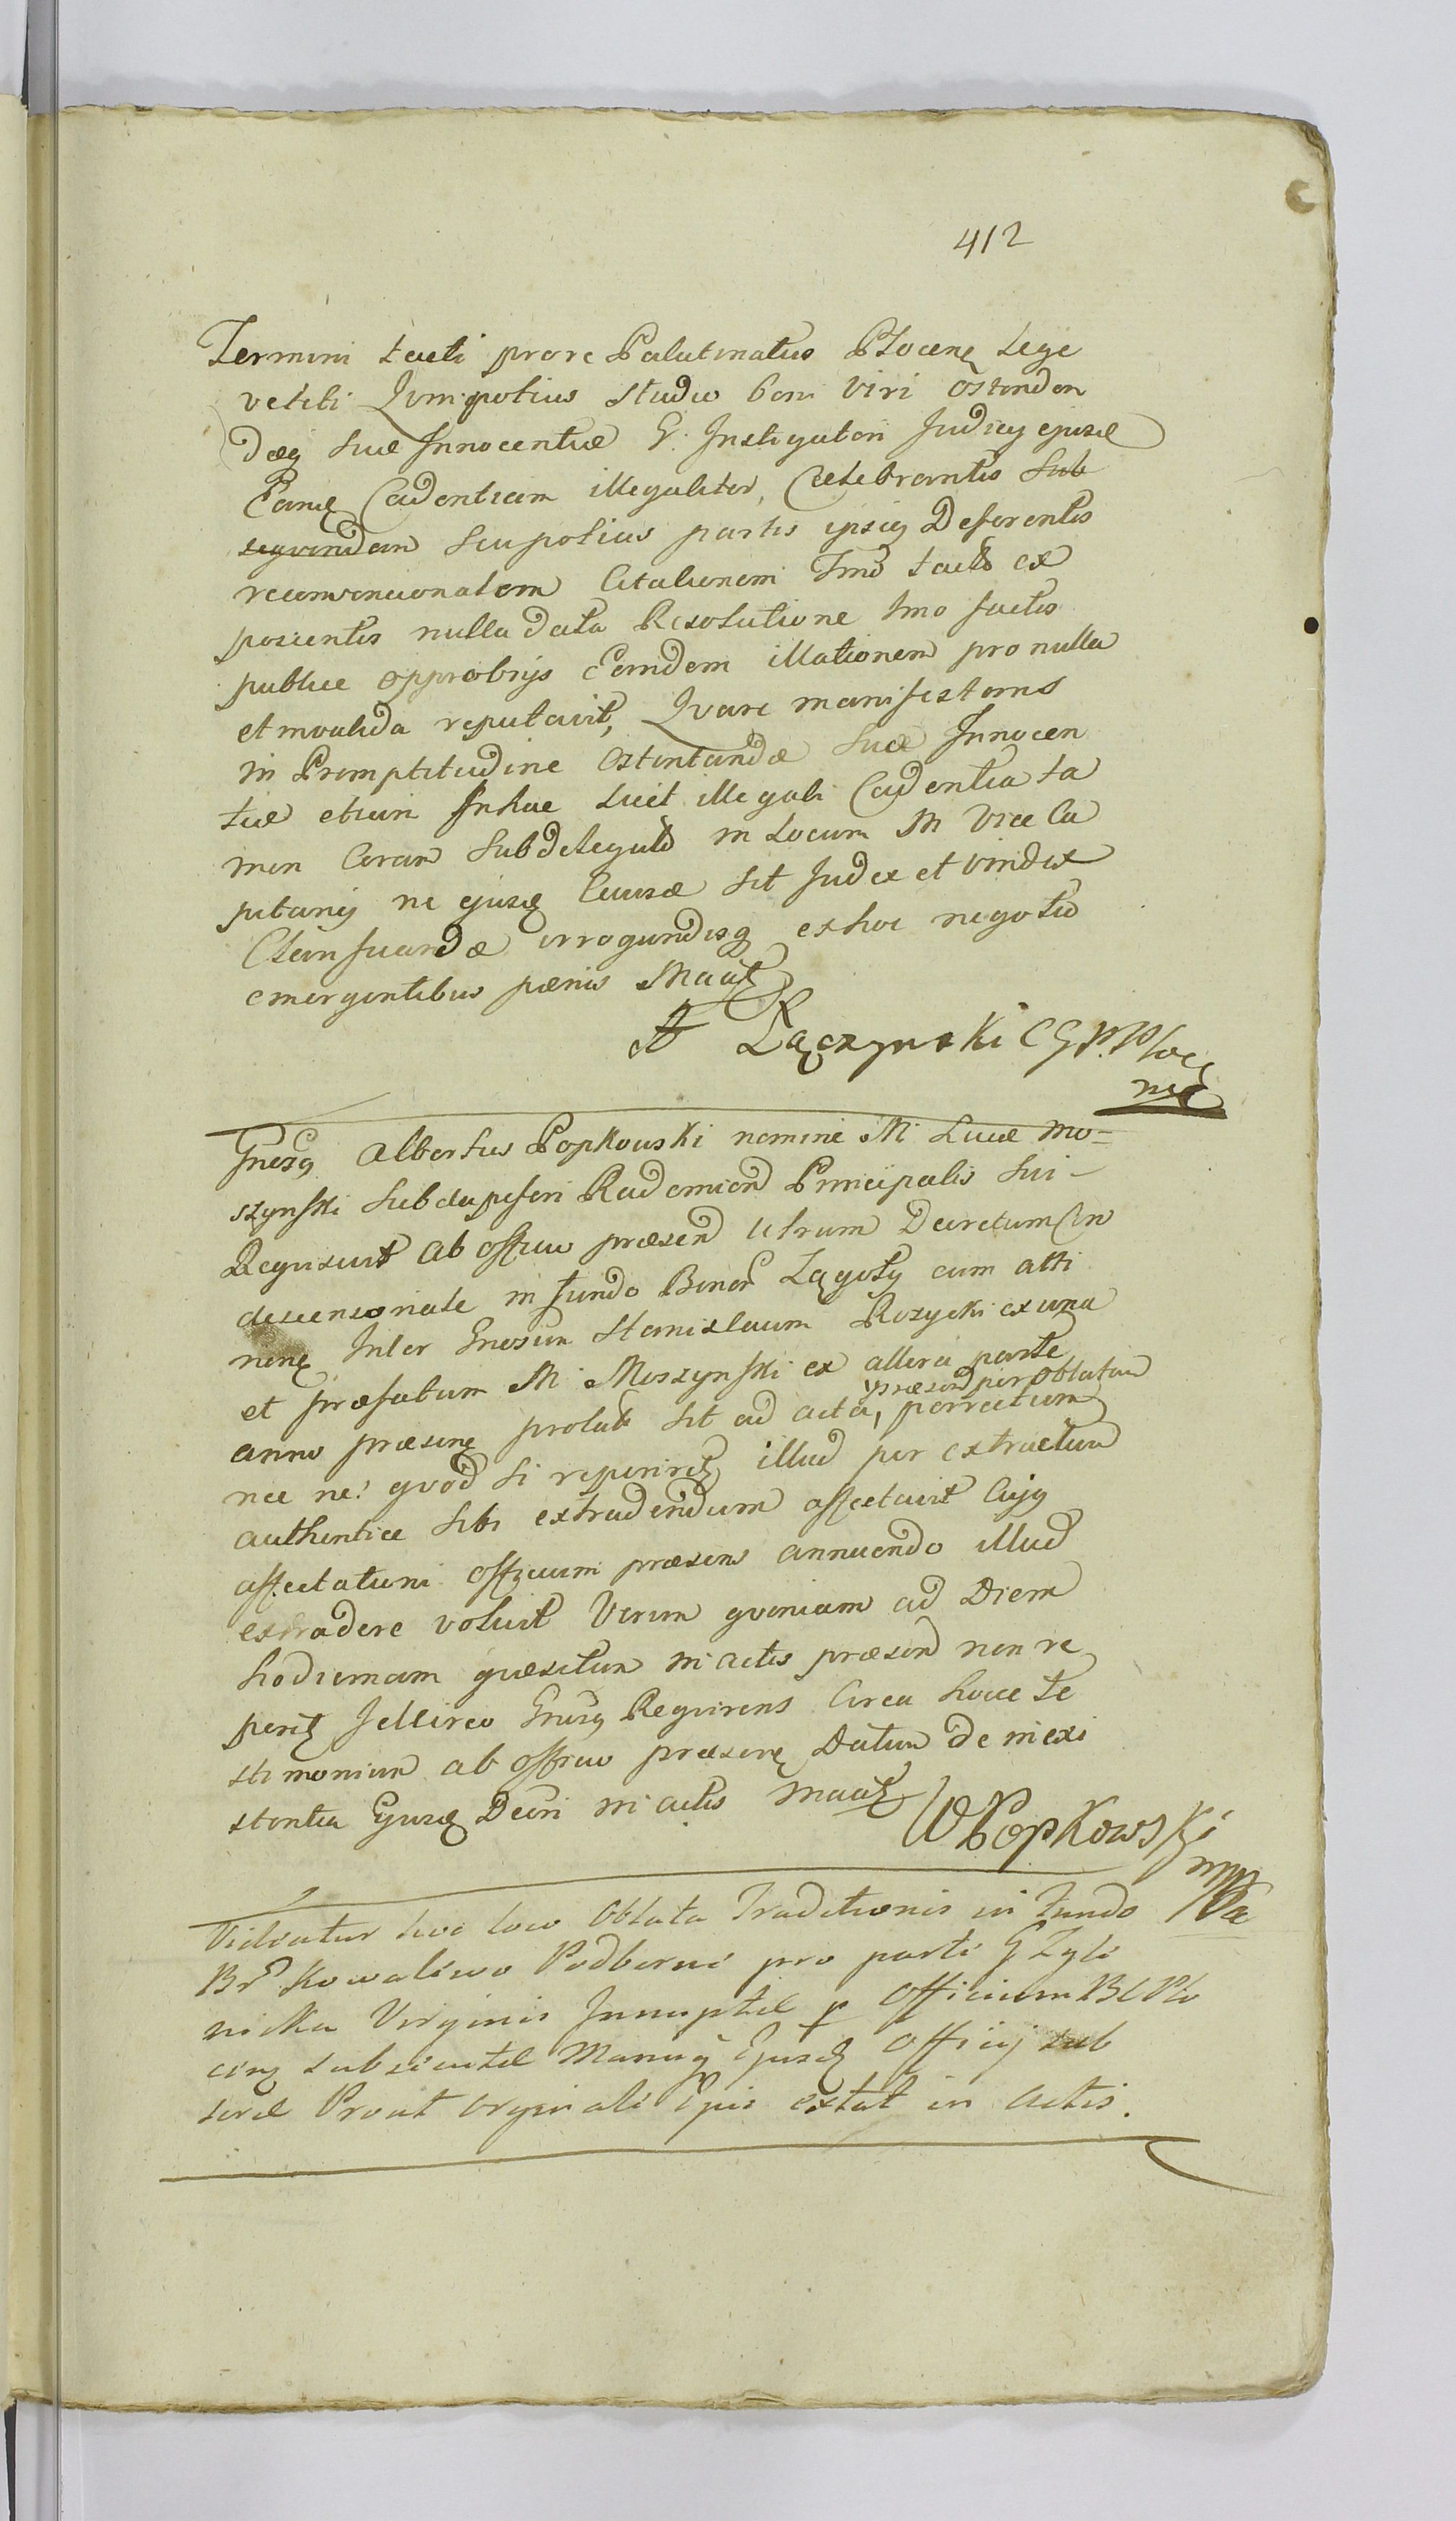 412
Termini tacti prore Palatinatus Plocenę Lege
vetiti Qvinpotius studio boni Viri ostenden
dæq suæ Innocentiæ G. Instigatori Judicij ejusd
Eamę Cadentiam illegaliter, Celebrantis Sub
seqvendam seu potius partis ipsiq Deferentis
reconvencionalem Citationem Imo tacto ex
poscentis nulla data Resolutione Imo factis
publice opprobrijs Eamdem illationem pro nulla
et invalida reputavit, Qvare manifestans
in Promptitudine Ostentandæ suæ Innocen
tiæ etiam In hac licet illegali Cadentia ta
men Coram Subdelegato in Locum M Vice Ca
pitanij ne ejusę Causæ sit Judex et vindex
Clarificandæ irrogandisq ex hoc negotio
emergentibus pænis Maāt
A Łączynski C G P. Ploc
mę
Gnesq Albertus Popkowski nomine M Lucæ Mo=
szynski Subdapiferi Radomien Principalis Sui
Reqvisivit ab officio præsen Utrum Decretum Con
descensionale in fundo Bonor Łągoty cum atti
nenę Inter Gnosum Stanislaum Rozycki ex una
et præfatum M Moszynski ex altera parte
anno præsenę prolat sit ad acta, præsen per oblatam porrectum
nec ne? qvod si reperiretę illud per extractum
authentice sibi extradendum affectavit Cujq
affectationi officium præsens annuendo illud
extradere voluit Verum qvoniam ad Diem
hodiernam quæsitum in actis præsen non re
peritę Idcirco Gnosq Reqvirens Circa hocce te
stimonium ab officio præsenę Datum de inexi
stentia Ejusę Decri in actis Maāt
WPopkowski
mpp
Videatur hoc loco Oblata Traditionis in Fundo
Br Kowalewo Podborne pro parte G Zyli
nicka Virginis Innuptæ p Officium B C Plo
cenę subsecutæ Manuq Ejusdę Officij sub
scræ Prout orginali Epis extat in Actis.